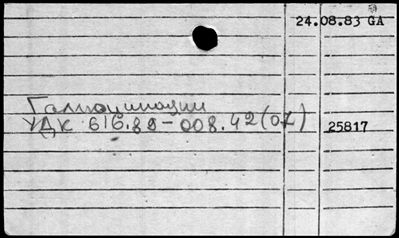 24.08.83 GA
Галлюцинации
УДК 616.89-008.42(02)
25817